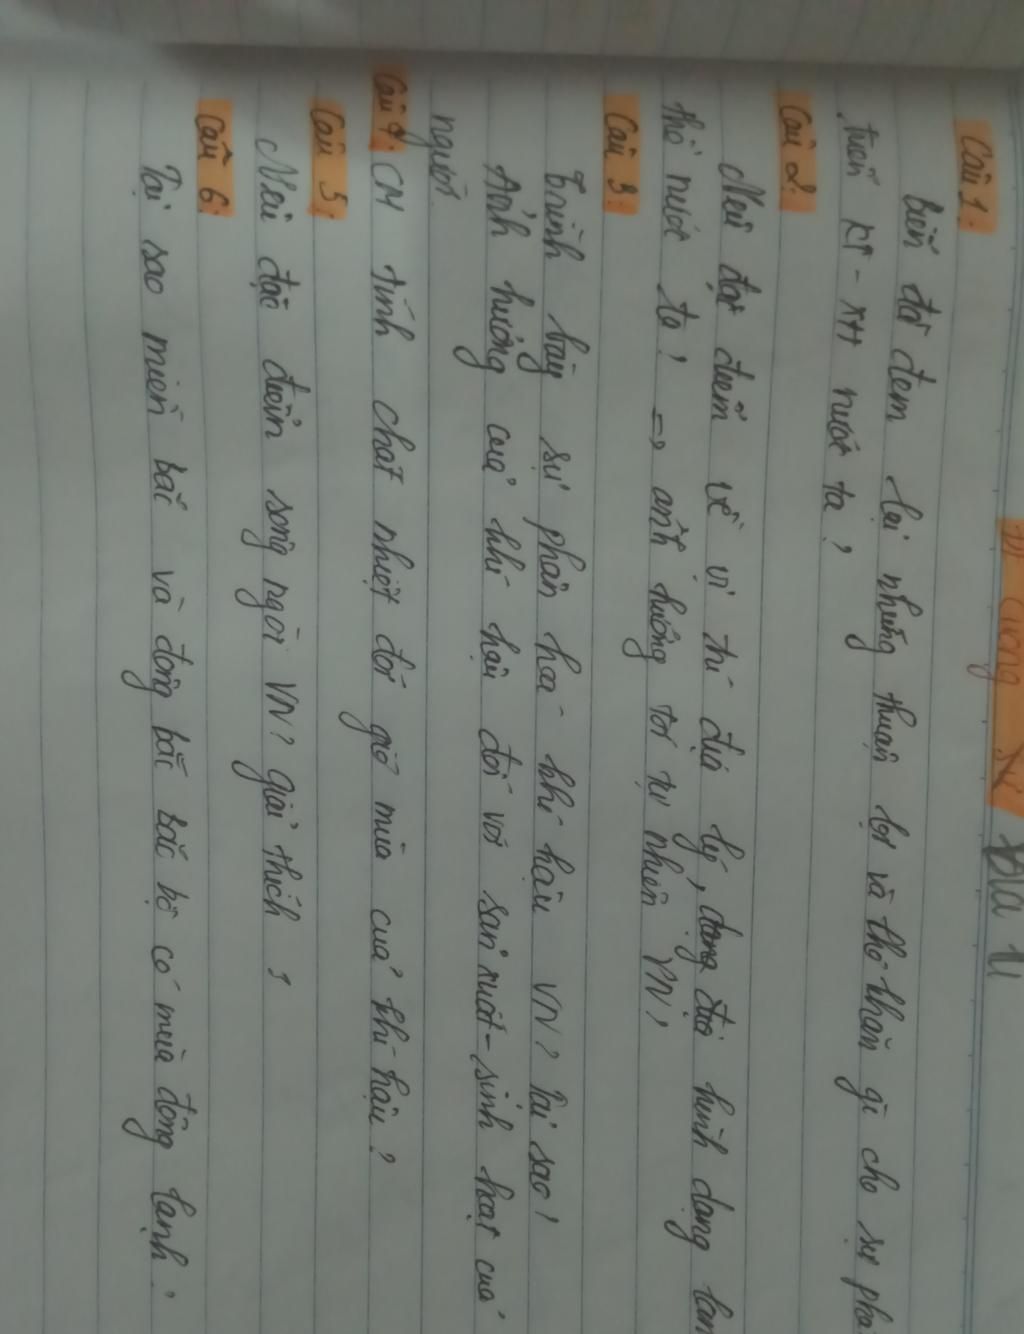 Đề cương Địa lí
Câu 1:
Biển đã đem lại những thuận lợi và khó khăn gì cho sự phá
triển KT - XH nước ta ?
Câu 2:
Nêu đặc điểm về vị trí địa lý, dạng địa hình dạng lan
thổ nước ta ? => ảnh hưởng tới tự nhiên VN ?
Câu 3:
Trình bày sự phân hoá khí hậu VN ? Tại sao ?
Ảnh hưởng của khí hậu đối với sản xuất - sinh hoạt của
người.
Câu 4: CM tính chất nhiệt đới gió mùa của khí hậu ?
Câu 5:
Nêu đặc điểm sông ngòi VN ? giải thích ?
Câu 6:
Tại sao miền bắc và đông bắc bắc bộ có mùa đông lạnh ?